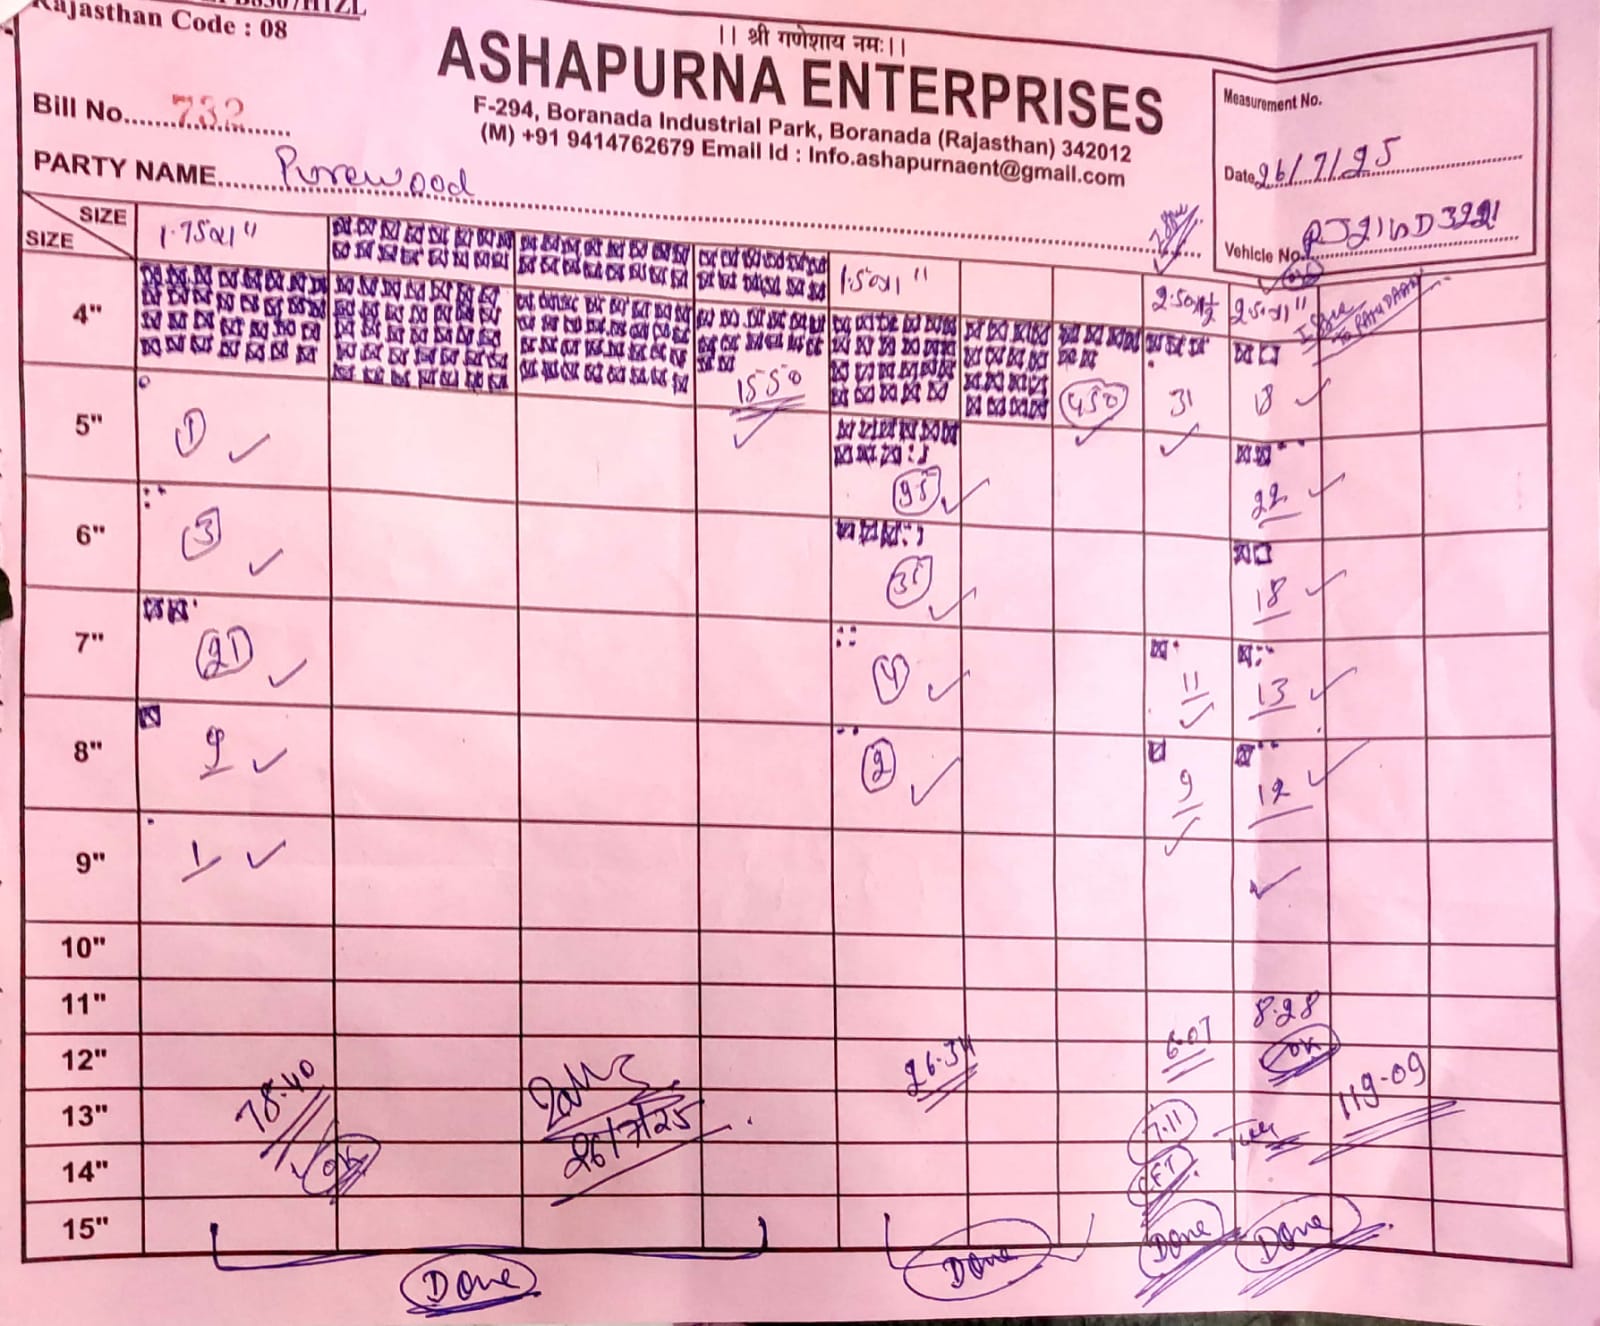 Rajasthan Code : 08
|| श्री गणेशाय नमः ||
ASHAPURNA ENTERPRISES
F-294, Boranada Industrial Park, Boranada (Rajasthan) 342012
(M) +91 9414762679 Email Id : Info.ashapurnaent@gmail.com
Bill No. 732
PARTY NAME Purewood
Measurement No.
Date 26/7/25
Vehicle No.
SIZE
SIZE
1.75x1" 1.50x1" 2.50x1½ 2.50x1"
4" 1550 450 31 18
5" 1 95 22
6" 3 35 18
7" 21 4 11 13
8" 9 2 9 12
9" 1
10"
11" 8.28
12" 26.34 6.07 OK
13" 78.40 26/7/25 7.11 119.09
14" OK CFT
15"
Done Done Done Done